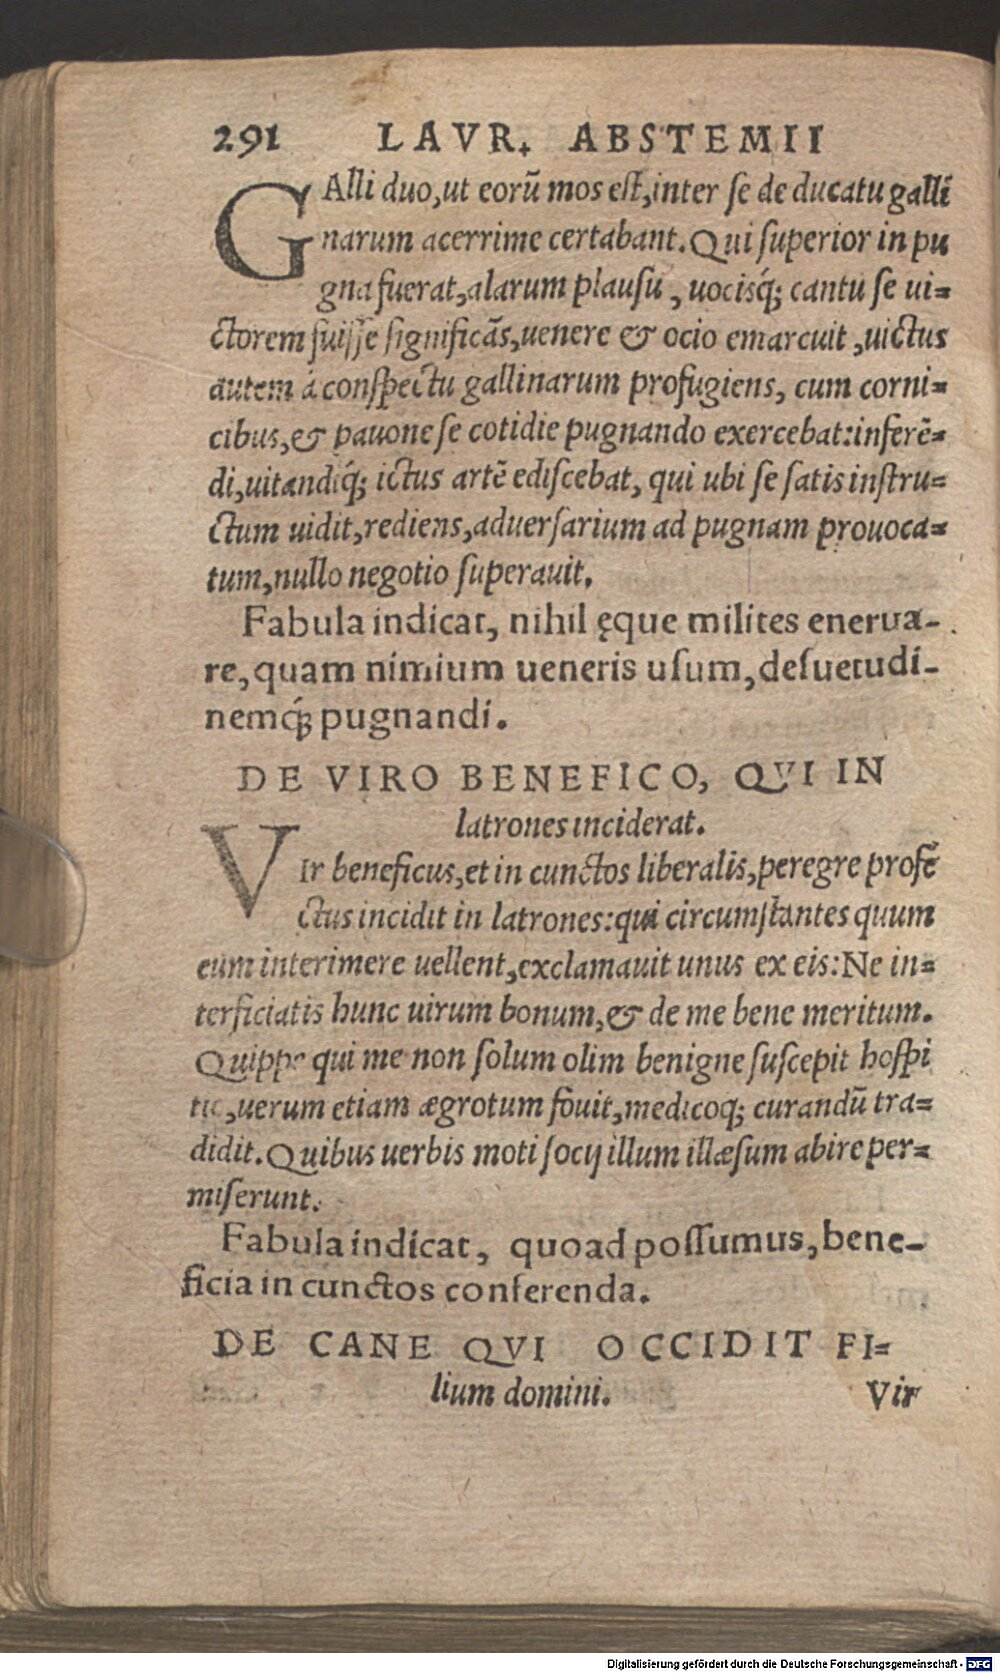 291 LAVR. ABSTEMII
GAlli duo,ut eorũ mos est,inter se de ducatu galli̅
narum acerrime certabant.Qui superior in pu
gna fuerat,alarum plausu, uocisq́; cantu se ui=
ctorem fuisse significãs,uenere & ocio emarcuit,uictus
autem á conspectu gallinarum profugiens, cum corni=
cibus,& pauone se cotidie pugnando exercebat:inferẽ=
di,uitandiq́; ictus artẽ ediscebat, qui ubi se satis instru=
ctum uidit,rediens,aduersarium ad pugnam prouoca=
tum,nullo negotio superauit.
Fabula indicat, nihil ęque milites enerua-
re,quam nimium ueneris usum,desuetudi-
nemq́; pugnandi.
DE VIRO BENEFICO, QVI IN
latrones inciderat.
VIr beneficus,et in cunctos liberalis,peregre profẽ
ctus incidit in latrones:qui circumstantes quum
eum interimere uellent,exclamauit unus ex eis:Ne in=
terficiatis hunc uirum bonum,& de me bene meritum.
Quippe qui me non solum olim benigne suscepit hospi
tio,uerum etiam ægrotum fouit,medicoq; curandũ tra=
didit.Quibus uerbis moti socij illum illæsum abire per=
miserunt.
Fabula indicat, quoad possumus,bene-
ficia in cunctos conferenda.
DE CANE QVI OCCIDIT FI=
lium domini. Vir
Digitalisierung gefördert durch die Deutsche Forschungsgemeinschaft - DFG